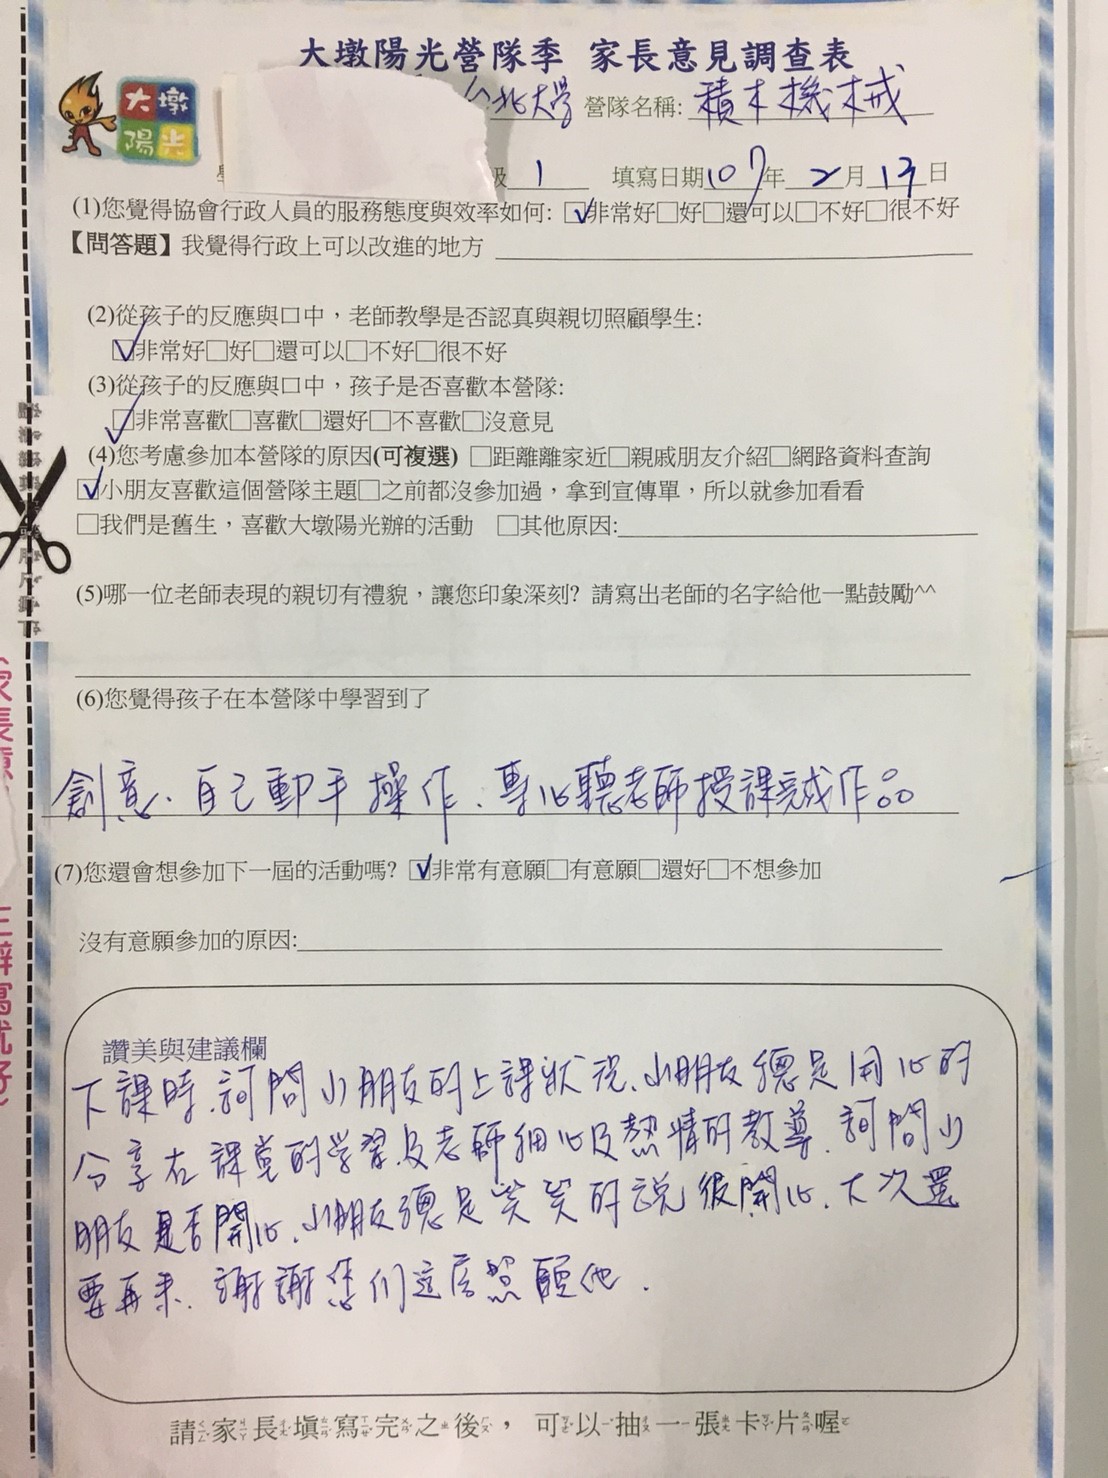 大墩陽光營隊季 家長意見調查表
大墩
陽光
台北大學 營隊名稱: 積木機械
級 1 填寫日期107年2月13日
(1)您覺得協會行政人員的服務態度與效率如何: ☑非常好□好□還可以□不好□很不好
【問答題】我覺得行政上可以改進的地方
(2)從孩子的反應與口中，老師教學是否認真與親切照顧學生:
☑非常好□好□還可以□不好□很不好
(3)從孩子的反應與口中，孩子是否喜歡本營隊:
☑非常喜歡□喜歡□還好□不喜歡□沒意見
(4)您考慮參加本營隊的原因(可複選) □距離離家近□親戚朋友介紹□網路資料查詢
☑小朋友喜歡這個營隊主題□之前都沒參加過，拿到宣傳單，所以就參加看看
□我們是舊生，喜歡大墩陽光辦的活動 □其他原因:
(5)哪一位老師表現的親切有禮貌，讓您印象深刻? 請寫出老師的名字給他一點鼓勵^^
(6)您覺得孩子在本營隊中學習到了
創意、自己動手操作、專心聽老師授課完成作品
(7)您還會想參加下一屆的活動嗎? ☑非常有意願□有意願□還好□不想參加
沒有意願參加的原因:
讚美與建議欄
下課時、詞問小朋友的上課狀況、小朋友總是開心的
分享在課堂的学習及老師細心及熱情的教導．詞問小
朋友是否開心、小朋友總是笑笑的說很開心．下次還
要再来．謝謝您们這店照顧他．
請家長填寫完之後，可以抽一張卡片喔